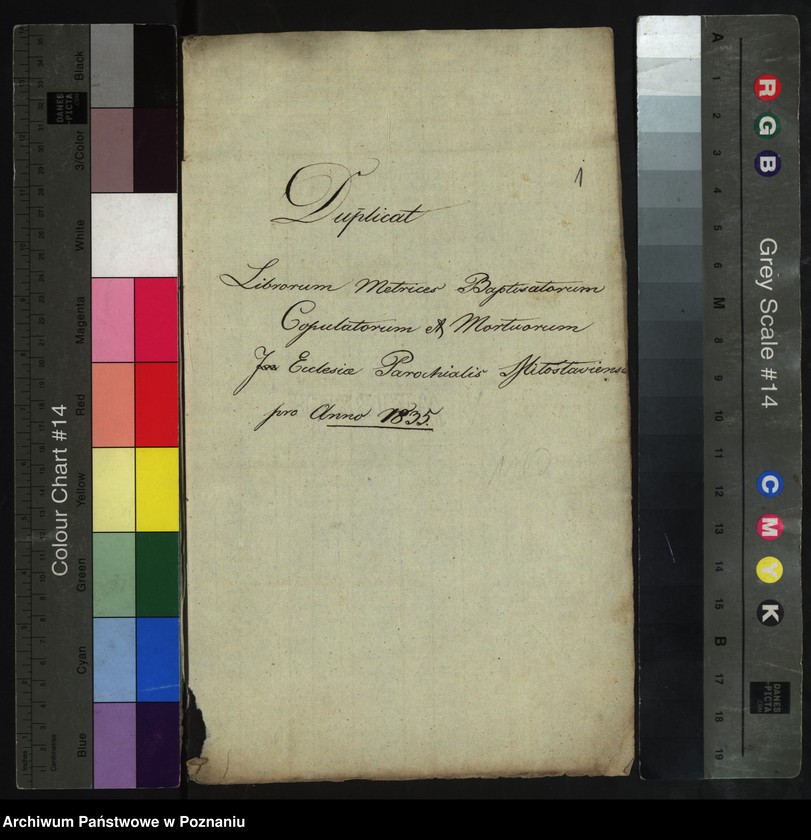 1
Duplicat
Librorum Metrices Baptisatorum
Copulatorum et Mortuorum
Ecclesiæ Parochialis Miłosłaviens
pro Anno 1835.
Colour Chart #14
Black
3/Color
White
Magenta
Red
Yellow
Green
Cyan
Blue
DANES
PICTA
Inches
Centimetres
Grey Scale #14
R
G
B
C
M
Y
K
A
1
2
3
4
5
6
M
8
9
10
11
12
13
14
15
B
17
18
19
DANES
PICTA
Archiwum Państwowe w Poznaniu